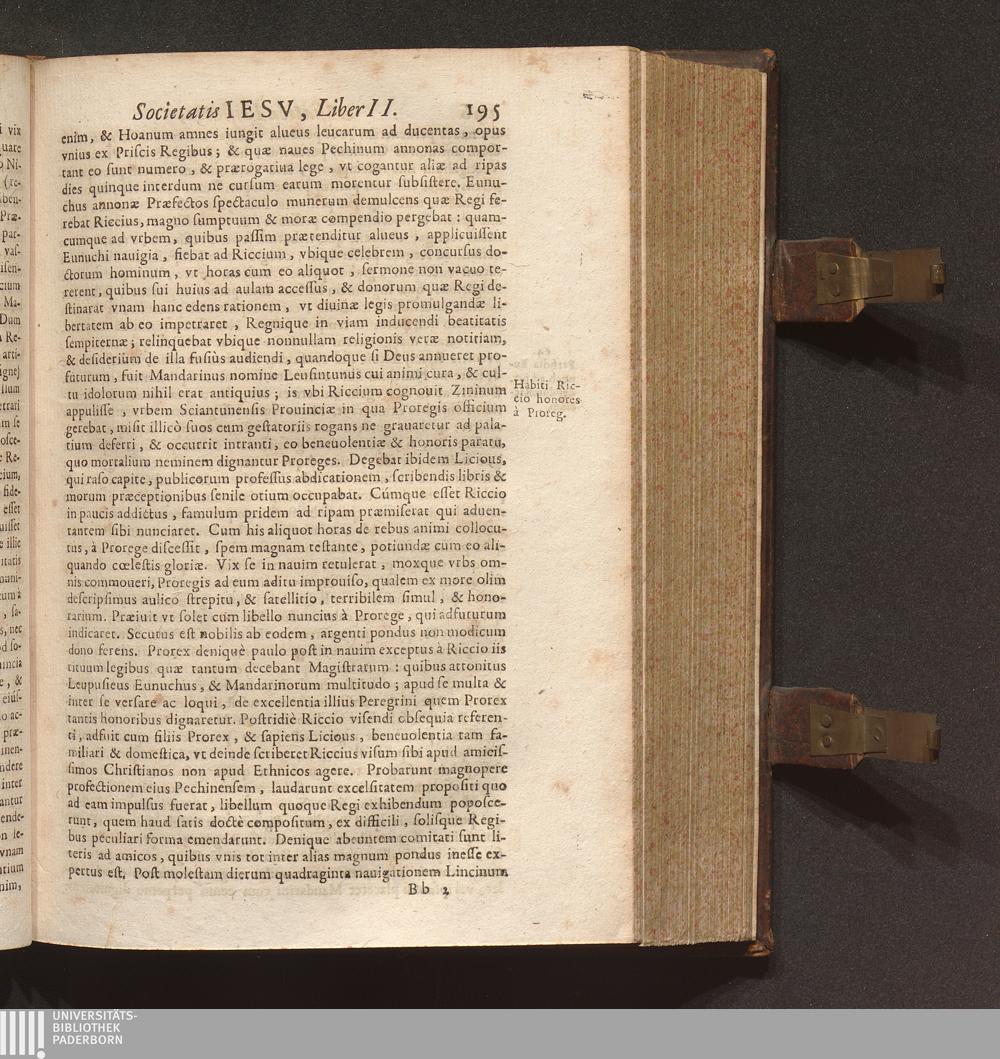 Societatis IESV, Liber II. 195
enim, & Hoanum amnes iungit alueus leucarum ad ducentas, opus
vnius ex Priſcis Regibus; & quæ naues Pechinum annonas compor-
tant eo ſunt numero, & prærogatiua lege, vt cogantur aliæ ad ripas
dies quinque interdum ne curſum earum morentur ſubſiſtere. Eunu-
chus annonæ Præfectos ſpectaculo munerum demulcens quæ Regi fe-
rebat Riccius, magno ſumptuum & moræ compendio pergebat: quam-
cumque ad vrbem, quibus paſſim prætenditur alueus, applicuiſſent
Eunuchi nauigia, fiebat ad Riccium, vbique celebrem, concurſus do-
ctorum hominum, vt horas cum eo aliquot, ſermone non vacuo te-
rerent, quibus ſui huius ad aulam acceſſus, & donorum quæ Regi de-
ſtinarat vnam hanc edens rationem, vt diuinæ legis promulgandæ li-
bertatem ab eo impetraret, Regnique in viam inducendi beatitatis
ſempiternæ; relinquebat vbique nonnullam religionis veræ notitiam,
& deſiderium de illa fuſiùs audiendi, quandoque ſi Deus annueret pro-
futurum, fuit Mandarinus nomine Leuſintunus cui animi cura, & cul-
tu idolorum nihil erat antiquius; is vbi Riccium cognouit Zininum
appuliſſe, vrbem Sciantunenſis Prouinciæ in qua Proregis officium
gerebat, miſit illicò ſuos cum geſtatoriis rogans ne grauaretur ad pala-
tium deferri, & occurrit intranti, eo beneuolentiæ & honoris paratu,
quo mortalium neminem dignantur Proreges. Degebat ibidem Licious,
qui raſo capite, publicorum profeſſus abdicationem, ſcribendis libris &
morum præceptionibus ſenile otium occupabat. Cúmque eſſet Riccio
in paucis addictus, famulum pridem ad ripam præmiſerat qui aduen-
tantem ſibi nunciaret. Cum his aliquot horas de rebus animi collocu-
tus, à Prorege diſceſſit, ſpem magnam teſtante, potiundæ cum eo ali-
quando cœleſtis gloriæ. Vix ſe in nauim retulerat, moxque vrbs om-
nis commoueri, Proregis ad eum aditu improuiſo, qualem ex more olim
deſcripſimus aulico ſtrepitu, & ſatellitio, terribilem ſimul, & hono-
rarium. Præiuit vt ſolet cum libello nuncius à Prorege, qui adfuturum
indicaret. Secutus eſt nobilis ab eodem, argenti pondus non modicum
dono ferens. Prorex deniquè paulo poſt in nauim exceptus à Riccio iis
rituum legibus quæ tantum decebant Magiſtratum: quibus attonitus
Leupuſieus Eunuchus, & Mandarinorum multitudo; apud ſe multa &
inter ſe verſare ac loqui, de excellentia illius Peregrini quem Prorex
tantis honoribus dignaretur. Poſtridiè Riccio viſendi obſequia referen-
ti, adfuit cum filiis Prorex, & ſapiens Licious, beneuolentia tam fa-
miliari & domeſtica, vt deinde ſcriberet Riccius viſum ſibi apud amiciſ-
ſimos Chriſtianos non apud Ethnicos agere. Probarunt magnopere
profectionem eius Pechinenſem, laudarunt excelſitatem propoſiti quo
ad eam impulſus fuerat, libellum quoque Regi exhibendum popoſce-
runt, quem haud ſatis doctè compoſitum, ex difficili, ſoliſque Regi-
bus peculiari forma emendarunt. Denique abeuntem comitati ſunt li-
teris ad amicos, quibus vnis tot inter alias magnum pondus ineſſe ex-
pertus eſt. Poſt moleſtam dierum quadraginta nauigationem Lincinum
Bb 2
Habiti Ric-
cio honores
à Proreg.
UNIVERSITÄTS-
BIBLIOTHEK
PADERBORN